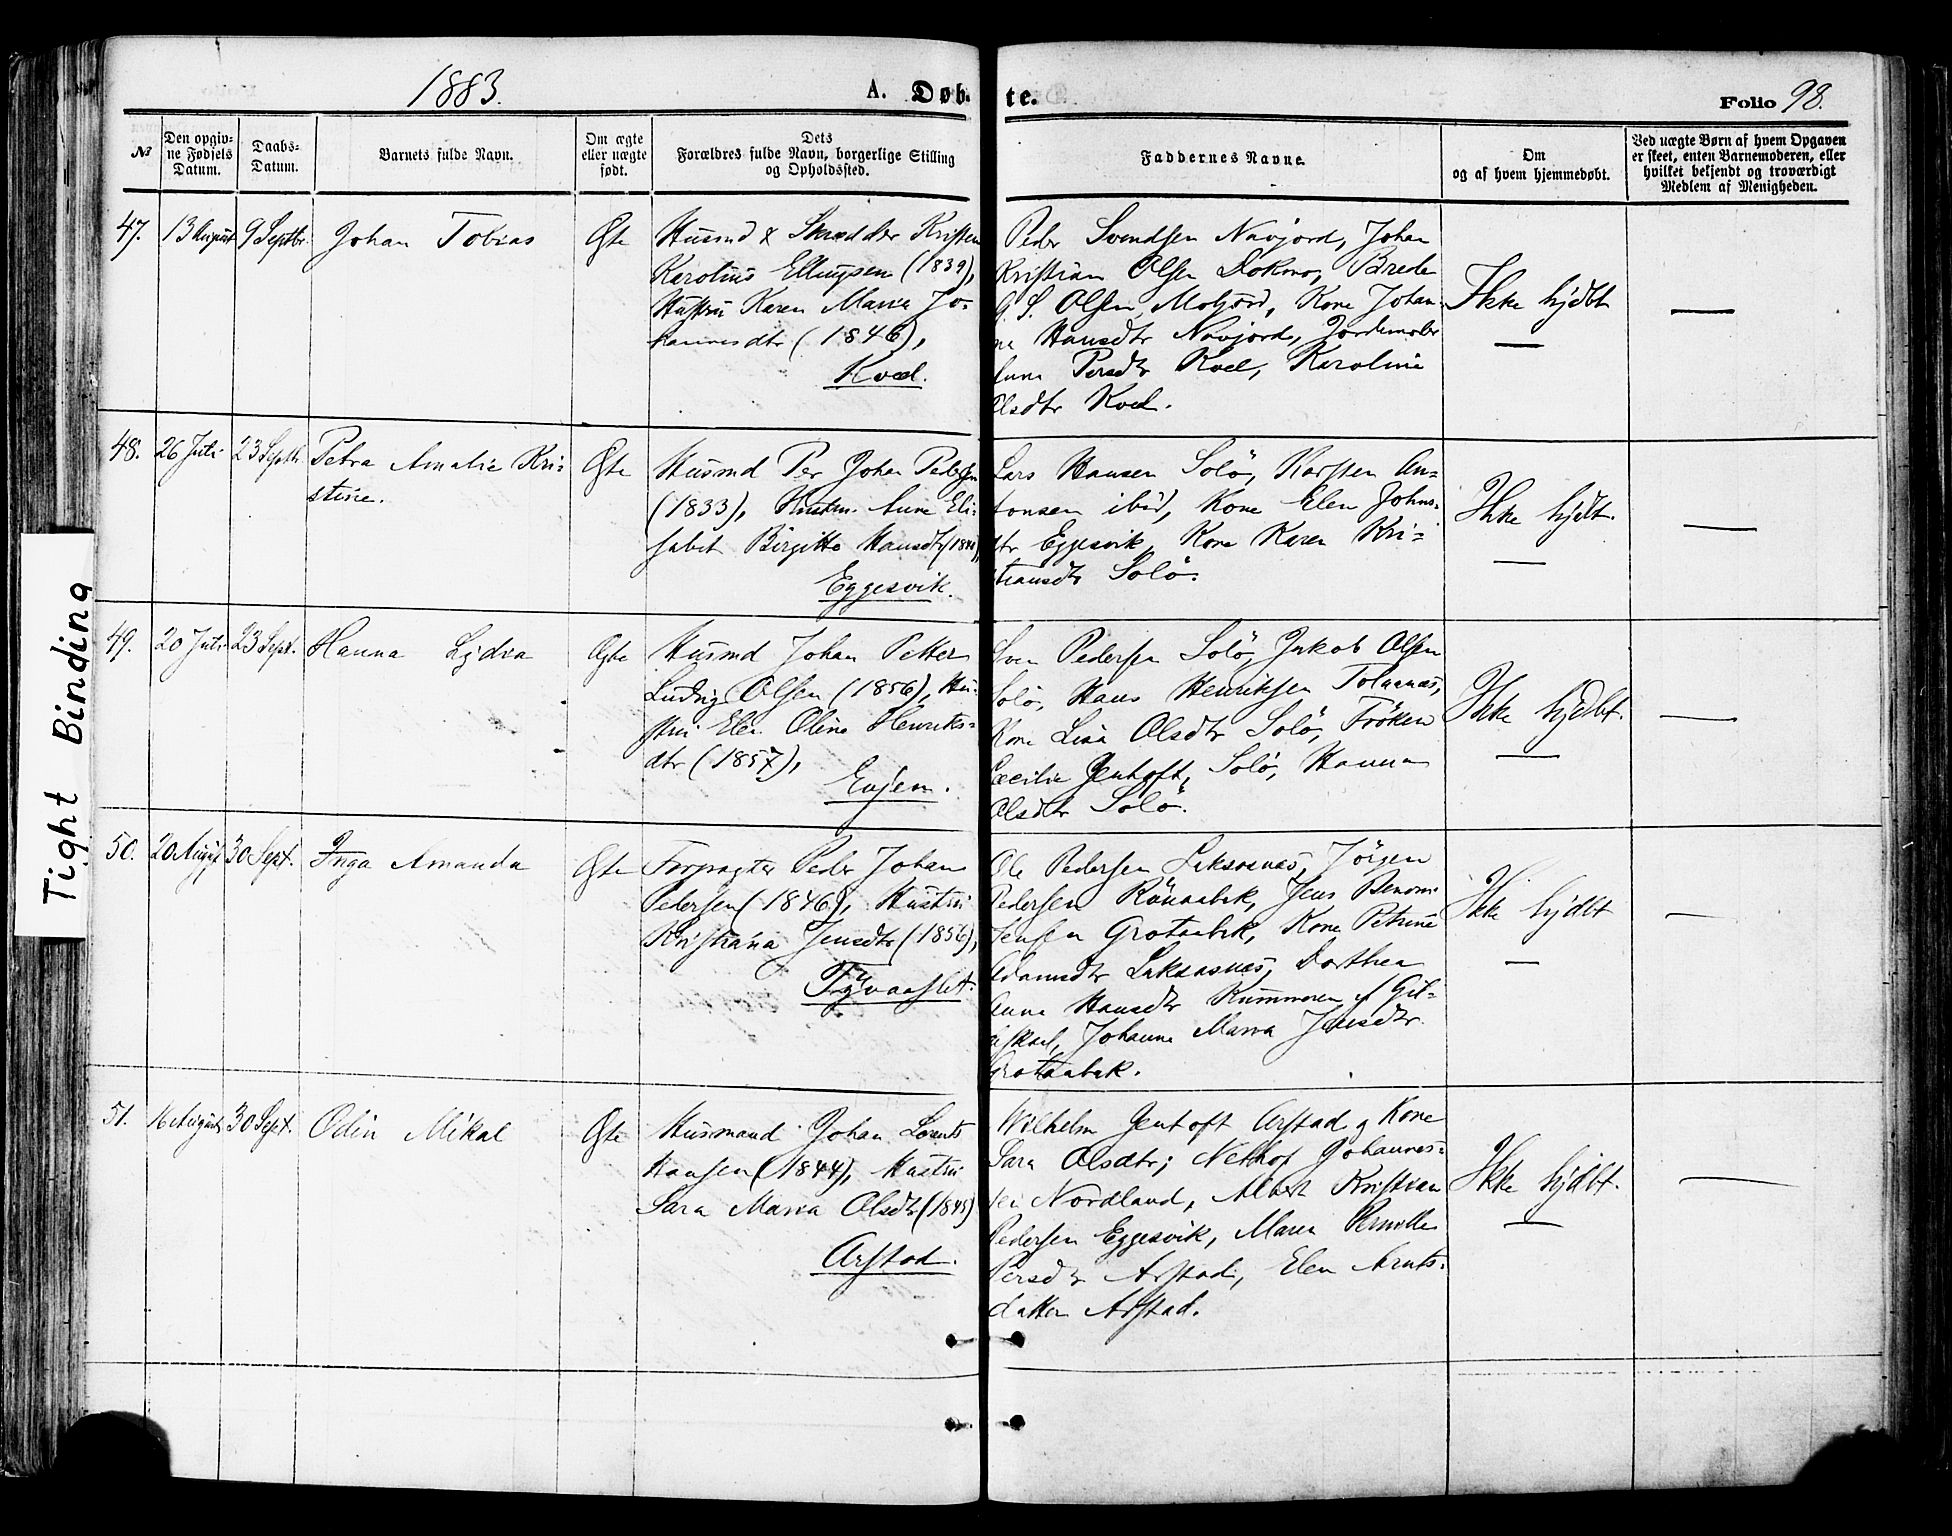 1883.
A. Døb-
te.
Folio 98.
№
Den opgiv-
ne Fødsels
Datum.
Daabs-
Datum.
Barnets fulde Navn.
Om ægte
eller uægte
født.
Dets
Forældres fulde Navn, borgerlige Stilling
og Opholdssted.
Faddernes Navne.
Om
og af hvem hjemmedøbt.
Ved uægte Børn af hvem Opgaven
er skeet, enten Barnemoderen, eller
hvilket bekjendt og troværdigt
Medlem af Menigheden.
47.
13 August
9 Septbr.
Johan Tobias
Ægte
Husmd & Skrædder Kristen
Karolius Ellingsen (1839),
Hustru Karen Maria Jo-
hannesdtr (1846),
Kvæl.
Peder Svendsen Navjord, Johan
Kristian Olsen Dokmo, Brede
G. S. Olsen, Moljord, Kone Johan-
ne Hansdtr Navjord, Jordemoder
Anna Persdtr Kvæl, Karoline
Olsdtr Kvæl.
Ikke hjdbt
—
48.
26 Juli
23 Septb.
Petra Amalie Kri-
stine.
Ægte
Husmd Per Johan Pedersen
(1833), Hustru Anne Eli-
sabet Birgitte Hansdtr
Eggesvik.
Lars Hansen Solö, Karsten An-
tonsen ibid, Kone Elen Johns-
dtr Eggesvik, Kone Karen Kri-
stiansdtr Solö.
Ikke hjdt.
—
49.
20 Juli
23 Sept.
Hanna Lydia
Ægte
Husmd Johan Petter
Ludvig Olsen (1856), Hu-
stru Elen Oline Henriks-
dtr (1857),
Evjen.
Sven Pedersen Solö, Jakob Olsen
Solö, Hans Henriksen Tolaanæs,
Kone Lisa Olsdtr Solö, Fröken
Cecilie Jentoft, Solö, Hanna
Olsdtr Solö.
Ikke hjdbt.
—
50.
20 August
30 Sept.
Inga Amanda
Ægte
Forpagter Peder Johan
Pedersen (1846), Hustru
Kristiana Jensdtr (1856),
Tyvaaslet.
Ole Pedersen Laksaasnæs, Jörgen
Pedersen Rönaabæk, Jens Benoni
Jensen Grotaabæk, Kone Petrine
Adamsdtr Laksaasnæs, Dorthea
Anna Hansdtr Kummeren f Gil-
deskaal, Johanna Maria Jensdtr.
Grotaabæk.
Ikke hjdbt
—
51.
16 August
30 Sept.
Odin Mikal
Ægte
Husmand Johan Lorents
Hansen (1844), Hustru
Sara Maria Olsdtr (1845)
Arstad.
Wilhelm Jentoft Arstad g Kone
Sara Olsdtr; Nethof Johannes-
sen Nordland, Albert Kristian
Pedersen Eggesvik, Maren Pernille
Persdtr Arstad, Elen Arnts-
datter Arstad.
Ikke hjdbt.
—
Tight Binding